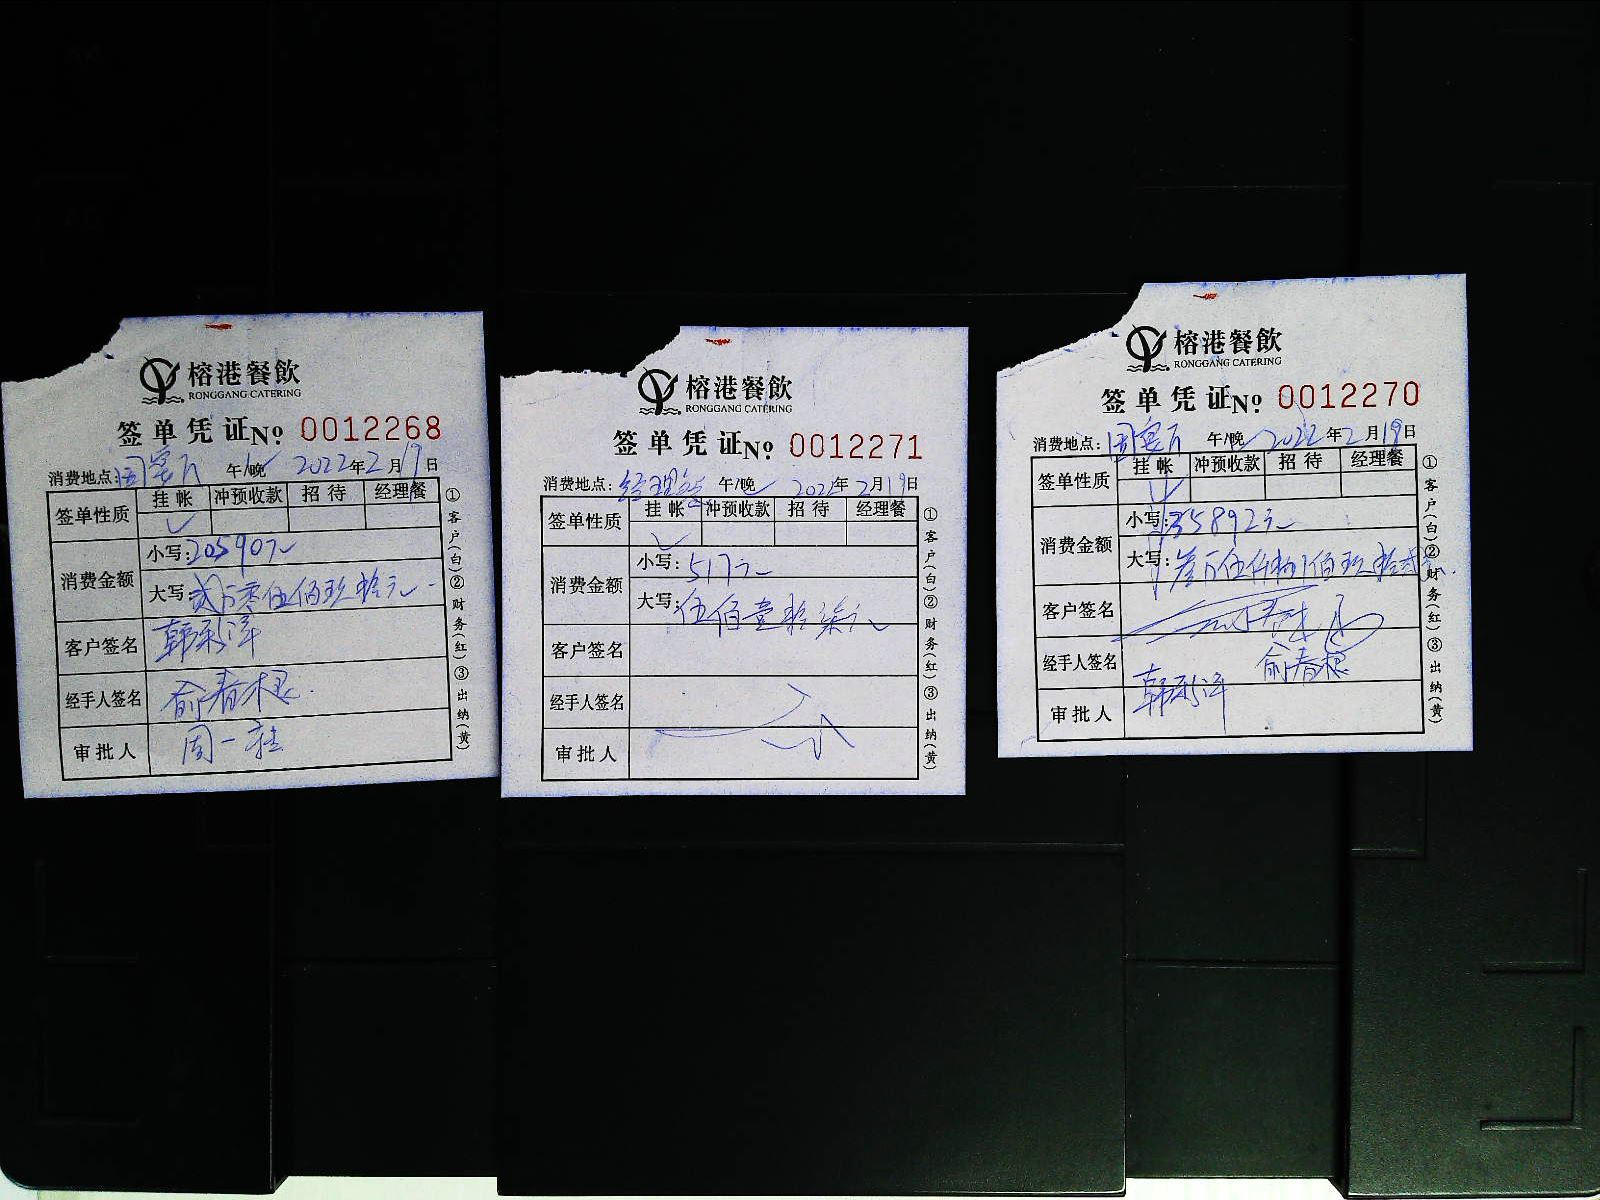 榕港餐飲
RONGGANG CATERING
签单凭证 № 0012268
消费地点: 国宴厅 午/晚 2022年2月19日
签单性质 挂帐 冲预收款 招待 经理餐
消费金额
小写: 20590元
大写: 贰万零伍佰玖拾元
客户签名
经手人签名 俞春根
审批人 周一
①客户(白)②财务(红)③出纳(黄)
榕港餐飲
RONGGANG CATERING
签单凭证 № 0012271
消费地点: 经理 午/晚 2022年2月19日
签单性质 挂帐 冲预收款 招待 经理餐
消费金额
小写: 517元
大写: 伍佰壹拾柒元
客户签名
经手人签名
审批人
①客户(白)②财务(红)③出纳(黄)
榕港餐飲
RONGGANG CATERING
签单凭证 № 0012270
消费地点: 国宴厅 午/晚 2022年2月19日
签单性质 挂帐 冲预收款 招待 经理餐
消费金额
小写: 35892元
大写: 叁万伍仟捌佰玖拾贰元
客户签名
经手人签名 俞春根
审批人
①客户(白)②财务(红)③出纳(黄)